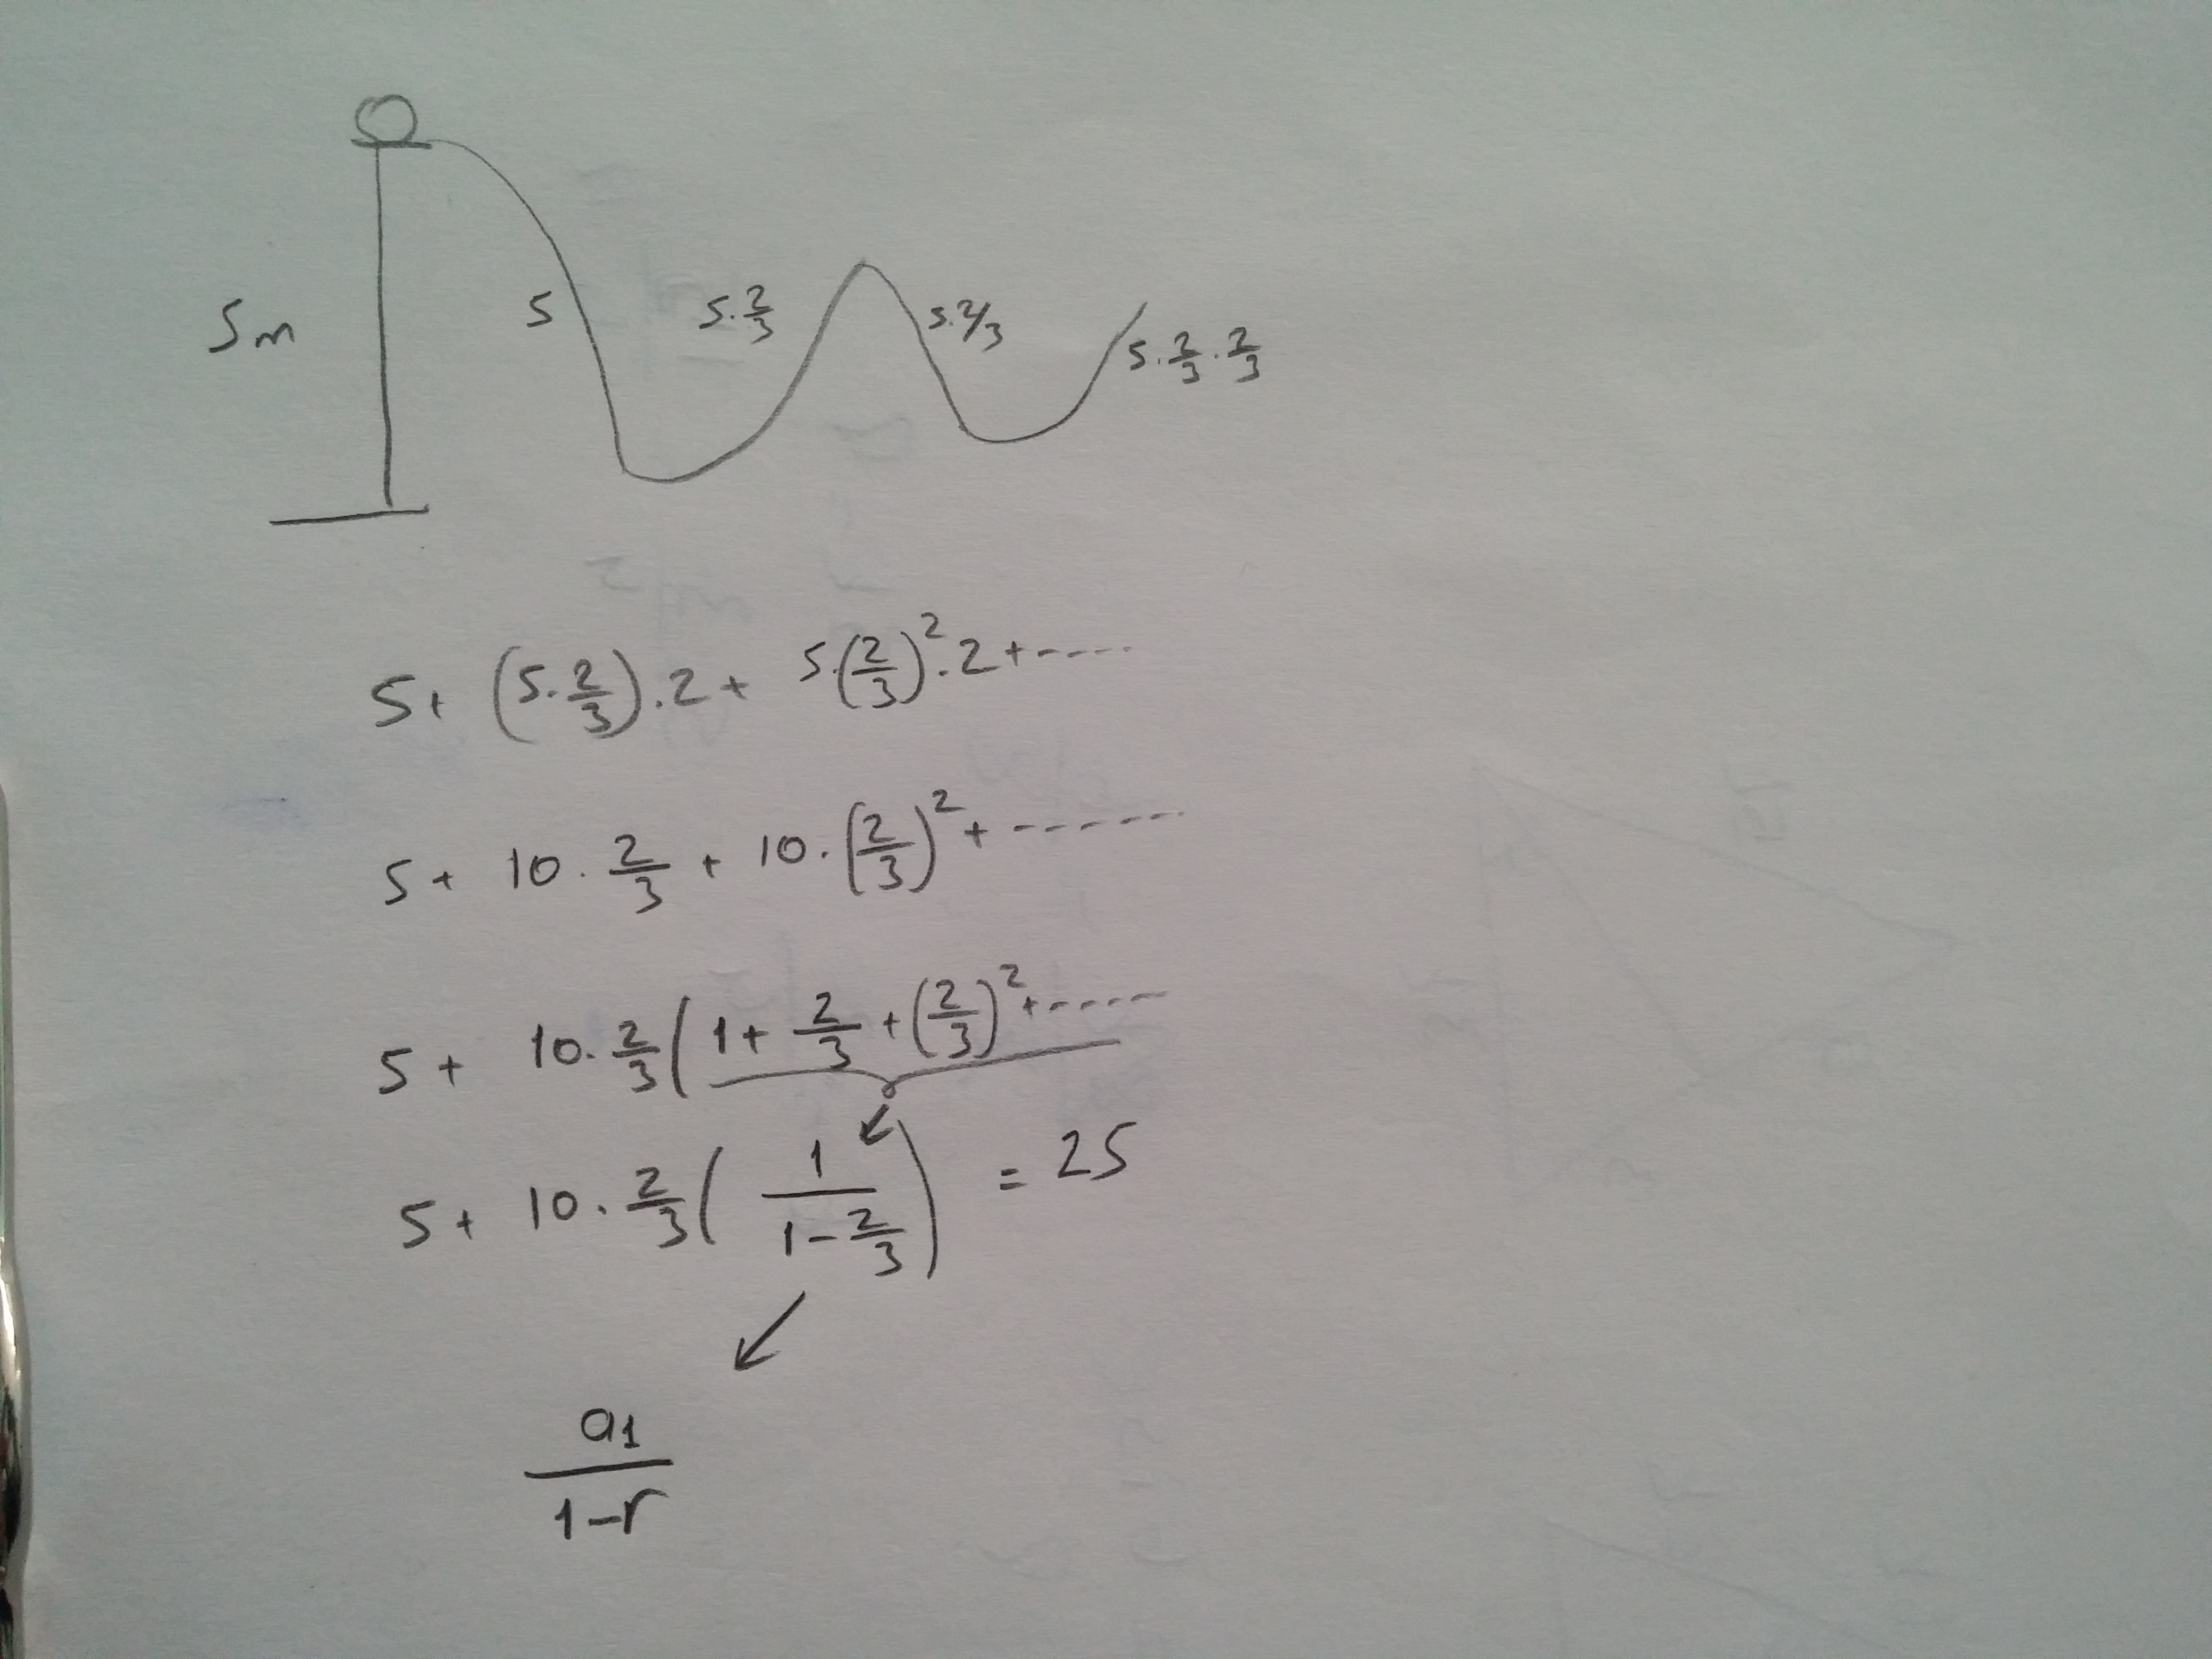 5m
5
5.2/3
5.2/3
5.2/3.2/3
5+ (5.2/3).2+ 5.(2/3)².2+-----
5+ 10.2/3 + 10.(2/3)²+-------
5+ 10.2/3(1+ 2/3 +(2/3)²+-----
5+ 10.2/3(1/1-2/3) = 25
a1/1-r